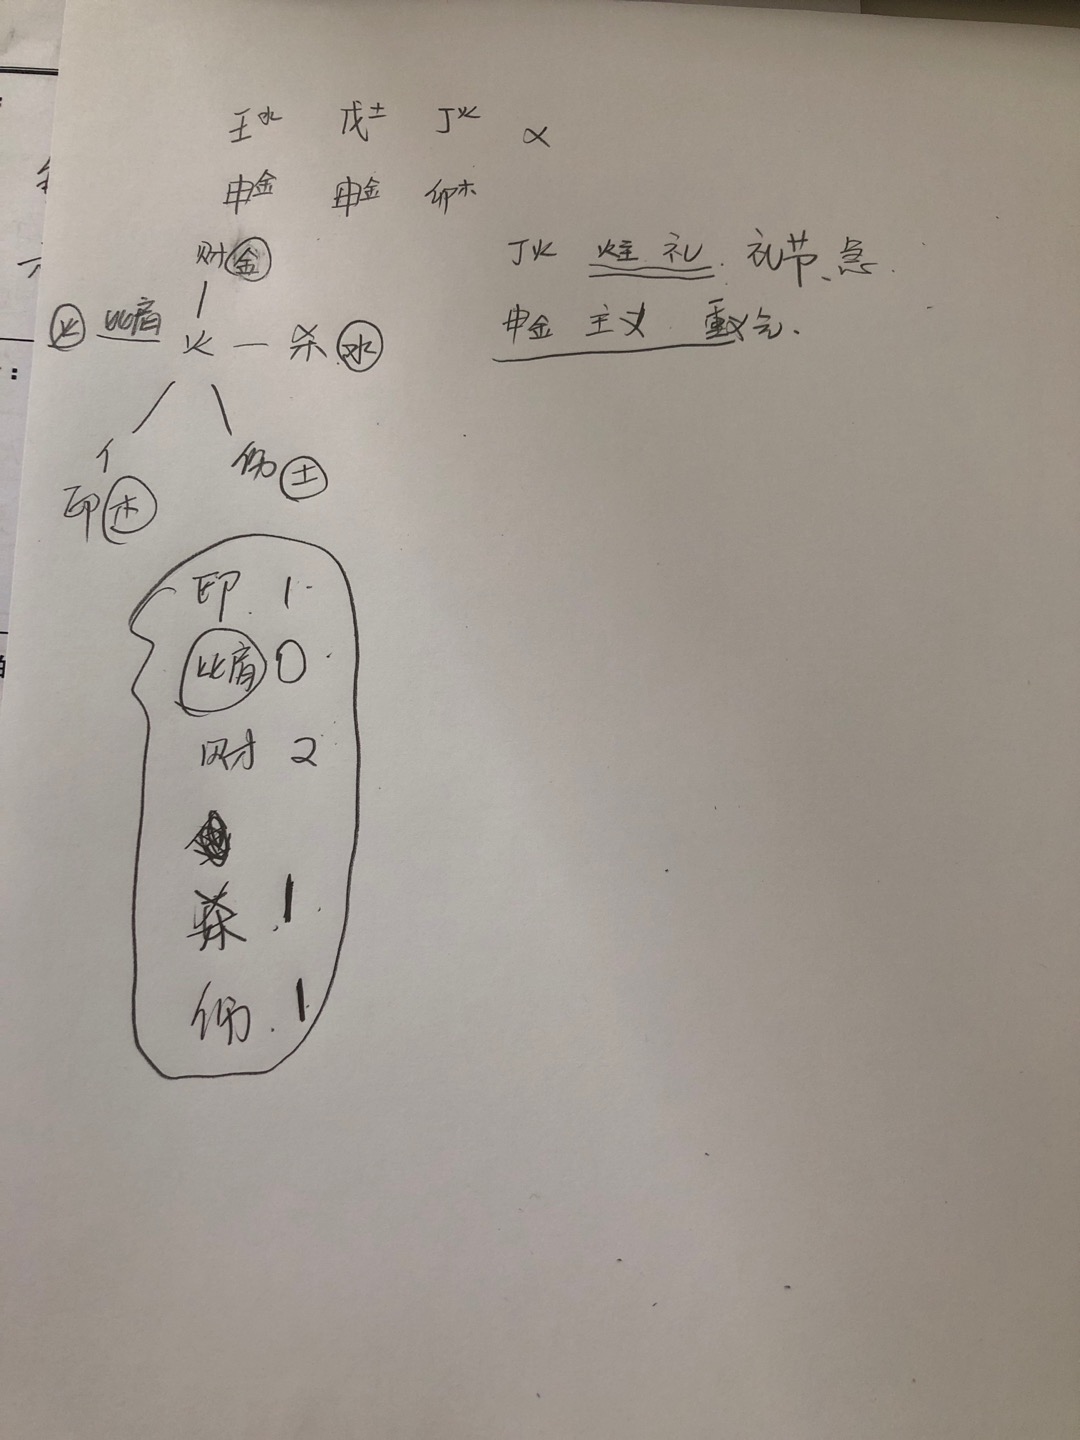 壬水 戊土 丁火 α
申金 申金 卯木
财金
火 比肩 火 杀 水
伤 土
印 木
丁火 火主 礼. 礼节、急.
申金 主义 重义气.
印 1
比肩 0
财 2
杀 1
伤 1